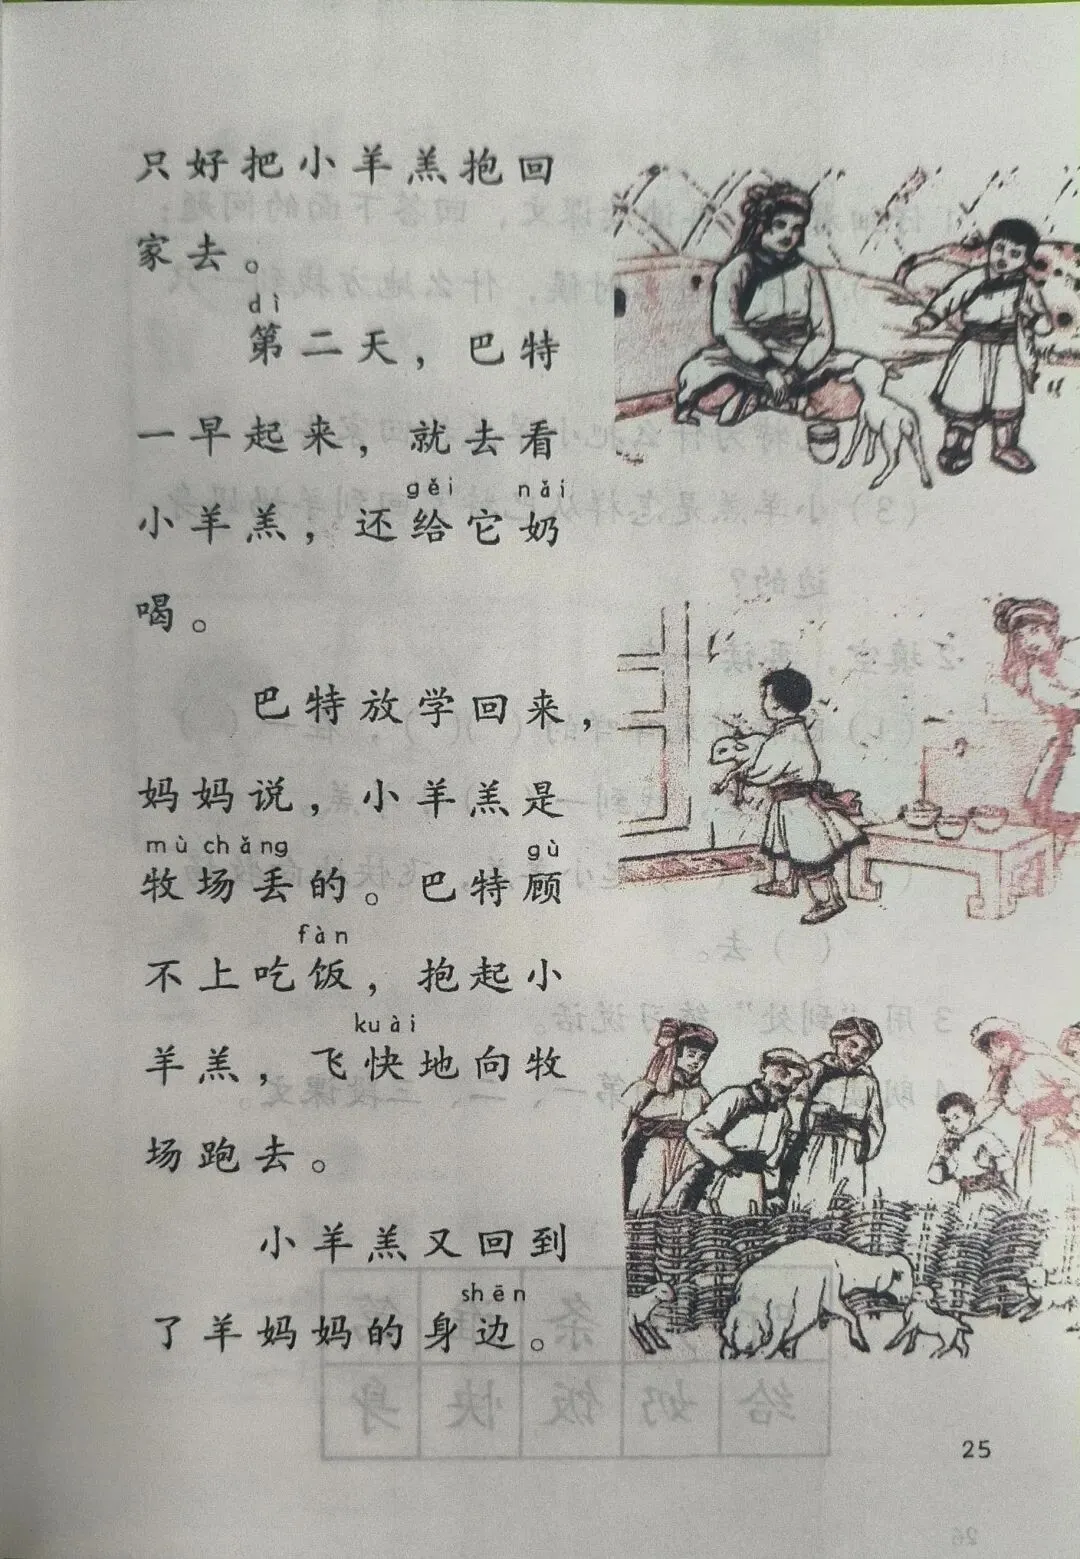 只好把小羊羔抱回
家去。
dì
第二天，巴特
一早起来，就去看
gěi nǎi
小羊羔，还给它奶
喝。
巴特放学回来，
妈妈说，小羊羔是
mù chǎng gù
牧场丢的。巴特顾
fàn
不上吃饭，抱起小
kuài
羊羔，飞快地向牧
场跑去。
小羊羔又回到
shēn
了羊妈妈的身边。
25